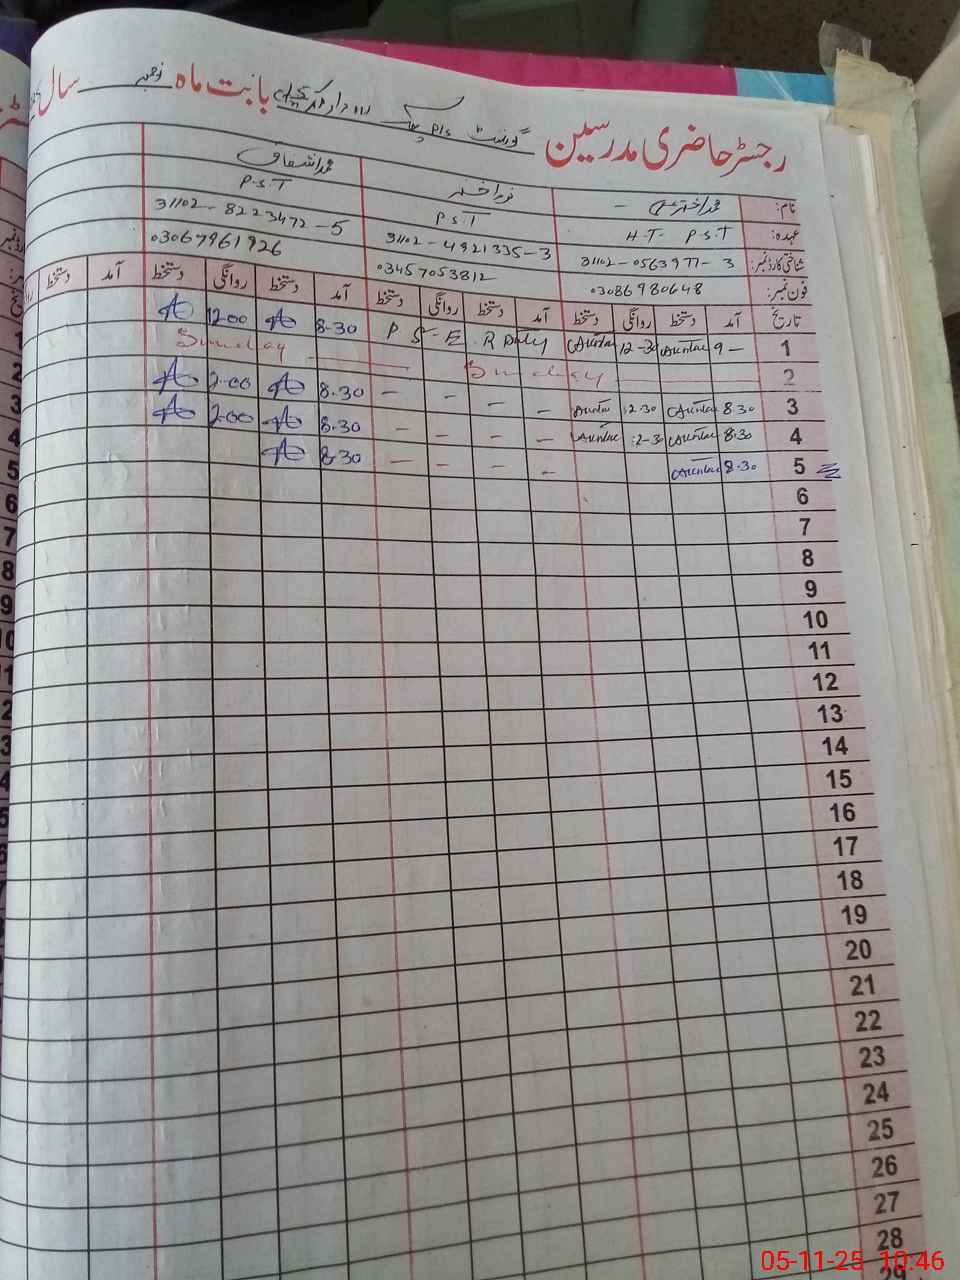 رجسٹر حاضری مدرسین گورنمنٹ P/S بابت ماہ نومبر سال
نام: محمد اختر نوید اختر محمد اشفاق
عہدہ: H-T- P.S.T P.S.T P.S.T
شناختی کارڈ نمبر: 31102-0563977-3 31102-4921335-3 31102-8223472-5
فون نمبر: 03086980648 03457053812 03067961926
تاریخ آمد دستخط روانگی دستخط آمد دستخط روانگی دستخط آمد دستخط روانگی دستخط آمد دستخط
1 9- 12-30 P S-E.R Duty 8-30 12-00
2 Sunday Sunday
3 8.30 12.30 - - - - 8.30 2-00
4 8.30 12-30 - - - - 8.30 2-00
5 8-30 - - - - 8-30
6
7
8
9
10
11
12
13
14
15
16
17
18
19
20
21
22
23
24
25
26
27
28
29
05-11-25 10:46